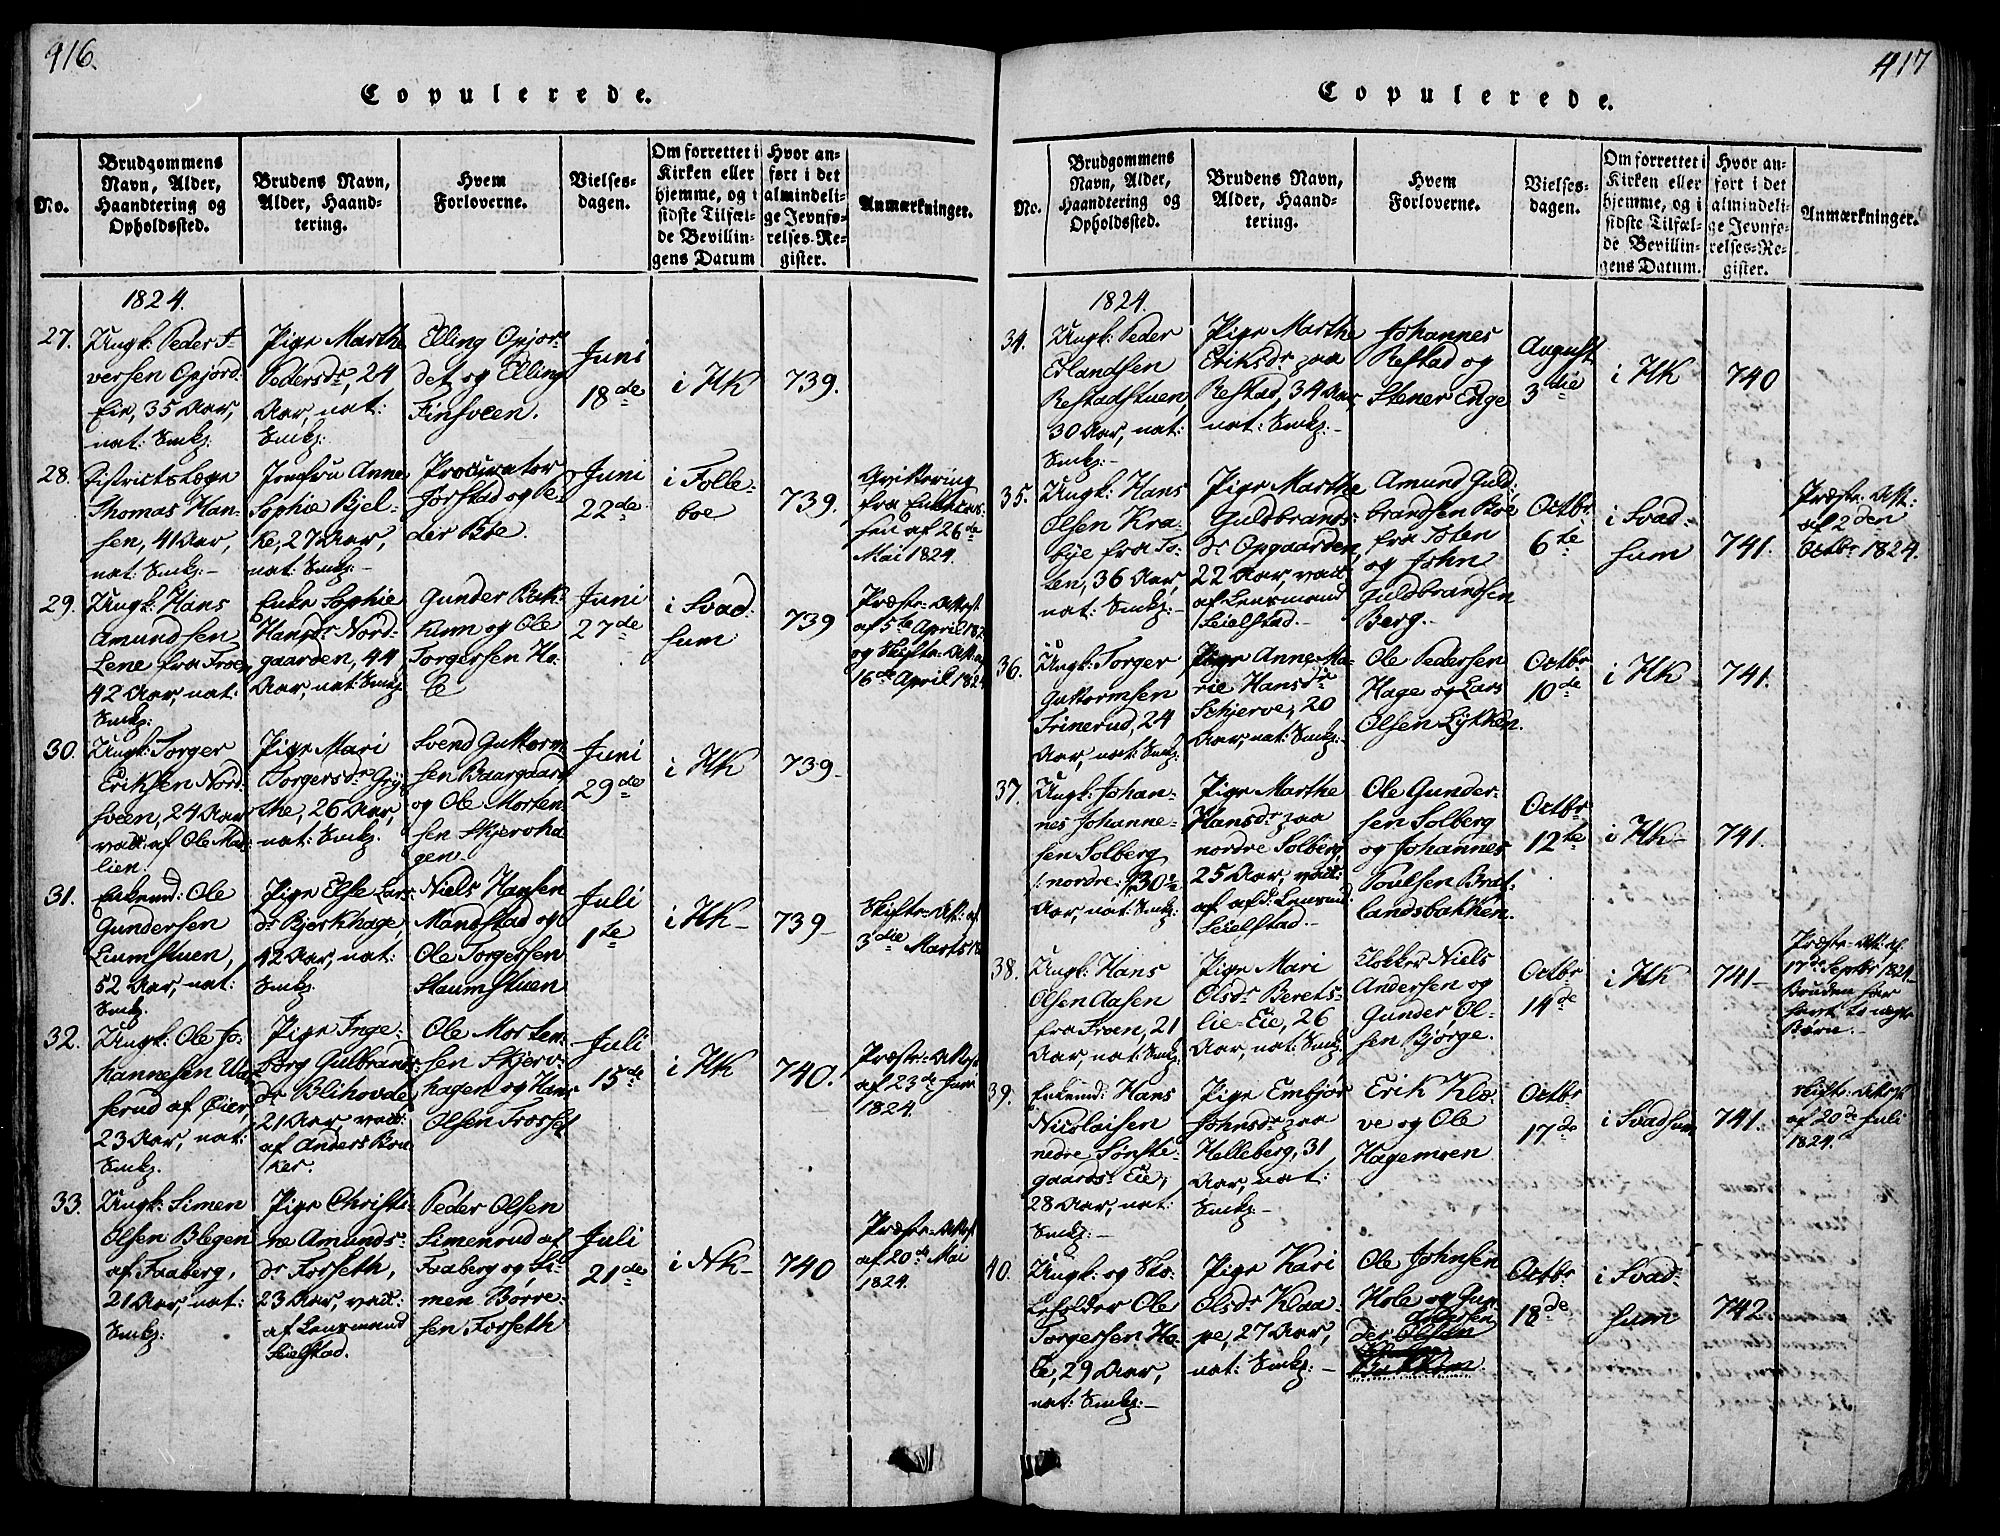 416.
Copulerede.
No.
Brudgommens
Navn, Alder,
Haandtering og
Opholdssted.
Brudens Navn,
Alder, Haand=
tering.
Hvem
Forloverne.
Vielses=
dagen.
Om forrettet i
Kirken eller
hjemme, og i
sidste Tilfæl=
de Bevillin=
gens Datum
Hvor an=
ført i det
almindeli=
ge Jevnfø=
relses=Re=
gister.
Anmærkninger.
1824.
27.
Ungk: Peder
versen Opjord
Eie, 35 Aar,
nat: Smkp:
Pige Marthe
Pedersdr, 24
Aar, nat:
Smkp:
Elling Opjor=
det og Elling
Finsveen.
Juni
18de
i HK
739.
28.
Districtslæge
Thomas Han=
sen, 41 Aar,
nat: Smkp:
Jomfru Anne
Sophie Bjel=
ke, 27 Aar,
nat: Smkp:
Procurator
Jorstad og Pe=
der Bøe.
Juni
22de
i Folle=
boe
739.
Qvittering
fra Enkecas=
sen af 26de
Mai 1824.
29.
Ungk: Hans
Amundsen
Lene fra Froen,
42 Aar, nat:
Smkp:
Enke Sophie
Hansdr Nord=
gaarden, 44
Aar, nat: Smkp.
Gunder Bak=
kum og Ole
Torgersen Ho=
le
Juni
27de
i Svad=
sum
739
Præste=Attest
af 5te April 182
og Skifte=Att: af
16de April 1824
30.
Ungk: Torger
Eriksen Nord=
sveen, 24 Aar
vac: af Ole Mæh=
lien.
Pige Mari
Torgersdr Gryt=
the, 26 Aar,
nat: Smkp.
Svend Guttorm=
sen Baargaard
og Ole Morten
sen Skjervha
gen
Juni
29de
i HK
739
31.
Enkemd: Ole
Gundersen
Liumstuen,
52 Aar, nat:
Smkp.
Pige Else Lars
dr Bjørkhage,
42 Aar, nat:
Smkp:
Niels Hansen
Mandstad og
Ole Torgersen
Staumstuen
Juli
1te
i HK
739
Skifte=Att: af
3die Marts 18
32.
Ungk: Ole Jo=
hannesen
serud af Øier
23 Aar, nat:
Smkp.
Pige Inge=
borg Gulbrands
dr Blihovde
21 Aar, vac:
af Anders Bræk
ker.
Ole Morten
sen Skjerv=
hagen og Hans
Olsen Trosset
Juli
15de
i HK
740.
Præste=Attest
af 23de Juni
1824.
33.
Ungk: Simen
Olsen Blegen
af Faaberg,
21 Aar, nat:
Smkp:
Pige Christi=
ne Amunds=
dr Forseth,
23 Aar, vac:
af Lensmand
Leielstad.
Peder Olsen
Simenrud af
Faaberg og Si=
men Børre=
sen Forseth
Juli
21de
i NK
740
Præste=Attest
af 20de Mai
1824.
417
Copulerede.
No.
Brudgommens
Navn, Alder,
Haandtering og
Opholdssted.
Brudens Navn,
Alder, Haand=
tering.
Hvem
Forloverne.
Vielses=
dagen.
Om forrettet i
Kirken eller
hjemme, og i
sidste Tilfæl=
de Bevillin=
gens Datum.
Hvor an=
ført i det
almindeli=
ge Jevnfø=
relses=Re=
gister.
Anmærkninger.
1824.
34.
Ungk: Peder
Erlandsen
Restadstuen,
30 Aar, nat:
Smkp:
Pige Marthe
Eriksdr paa
Restad, 34 Aar,
nat: Smkp:
Johannes
Restad og
Stener Enge
August
3die
i HK
740
35.
Ungk: Hans
Olsen Kra=
bye fra To=
ten, 36 Aar,
nat: Smkp:
Pige Marthe
Guldbrands=
dr Opgaarden
22 Aar, vac:
af Lensmand
Leielstad.
Amund Guld=
brandsen Boe
fra Toten
og John
Guldbrandsen
Berg.
Octbr
6te
i Svad=
sum
741.
Præste=Att:
af 2den
Octbr 1824.
36.
Ungk: Torger
Guttormsen
Trinerud, 24
Aar, nat: Smkp:
Pige Anne Ma=
rie Hansdr
Schjerve, 20
Aar, nat: Smkp:
Ole Pedersen
Hage og Lars
Olsen Lykken
Octbr
10de
i HK
741.
37.
Ungk: Johan=
nes Johanne=
sen Solberg
nordre, 30½
Aar, nat: Smkp:
Pige Marthe
Hansdr paa
nordre Solberg
25 Aar, vac:
af afd: Lensmd:
Leielstad.
Ole Gunder=
sen Solberg
og Johannes
Poulsen Brat=
landsbakken.
Octbr
12te
i HK
741.
38.
Ungk: Hans
Olsen Aasen
fra Froen, 21
Aar, nat: Smkp:
Pige Mari
Olsdr Berets=
lie=Eie, 26
Aar, nat: Smkp:
Klokker Niels
Andersen og
Gunder Ol=
sen Bjørge.
Octbr
14de
i HK
741
Præste=Att: af
17de Septbr 1824
Bruden har
havt to uægte
Børn.
39.
Enkemd: Hans
Nicolaisen
nedre Sønste=
gaards Eie,
28 Aar, nat:
Smkp:
Pige Embjør
Johnsdr paa
Helleberg, 31
Aar, nat:
Smkp:
Erik Klø=
ve og Ole
Hagemoen
Octbr
17de
i Svadsum
741.
Skifte=Attest
af 20de Juli
1824.
40.
Ungk: og Sko=
leholder Ole
Torgersen Ho=
le, 29 Aar,
nat: Smkp:
Pige Kari
Olsdr Klaa=
pe, 27 Aar,
nat: Smkp:
Ole Johnsen
Hole og Gun
Andersen
der Olsen
Bakken.
Octbr
18de
i Svad=
sum
742.